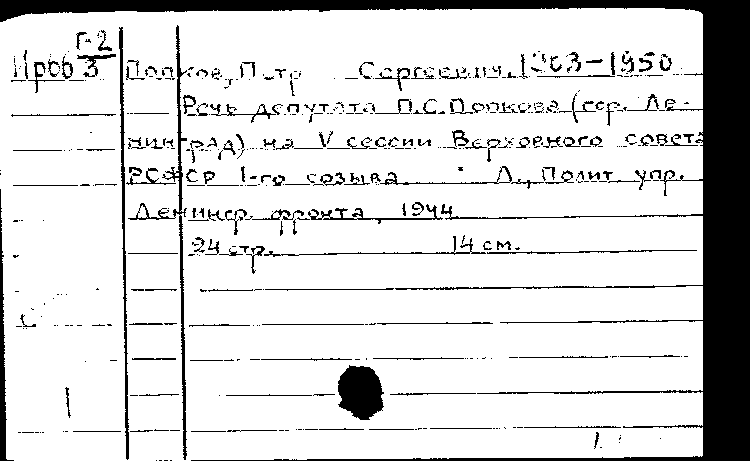 Г-2
Ирбб 3
Попков, Петр Сергеевич, 1903-1950
Речь депутата П.С.Попкова (гор. Ле-
нинград) на V сессии Верховного совета
РСФСР 1-го созыва. Л., Полит. упр.
Ленингр. фронта, 1944
24 стр. 14 см.